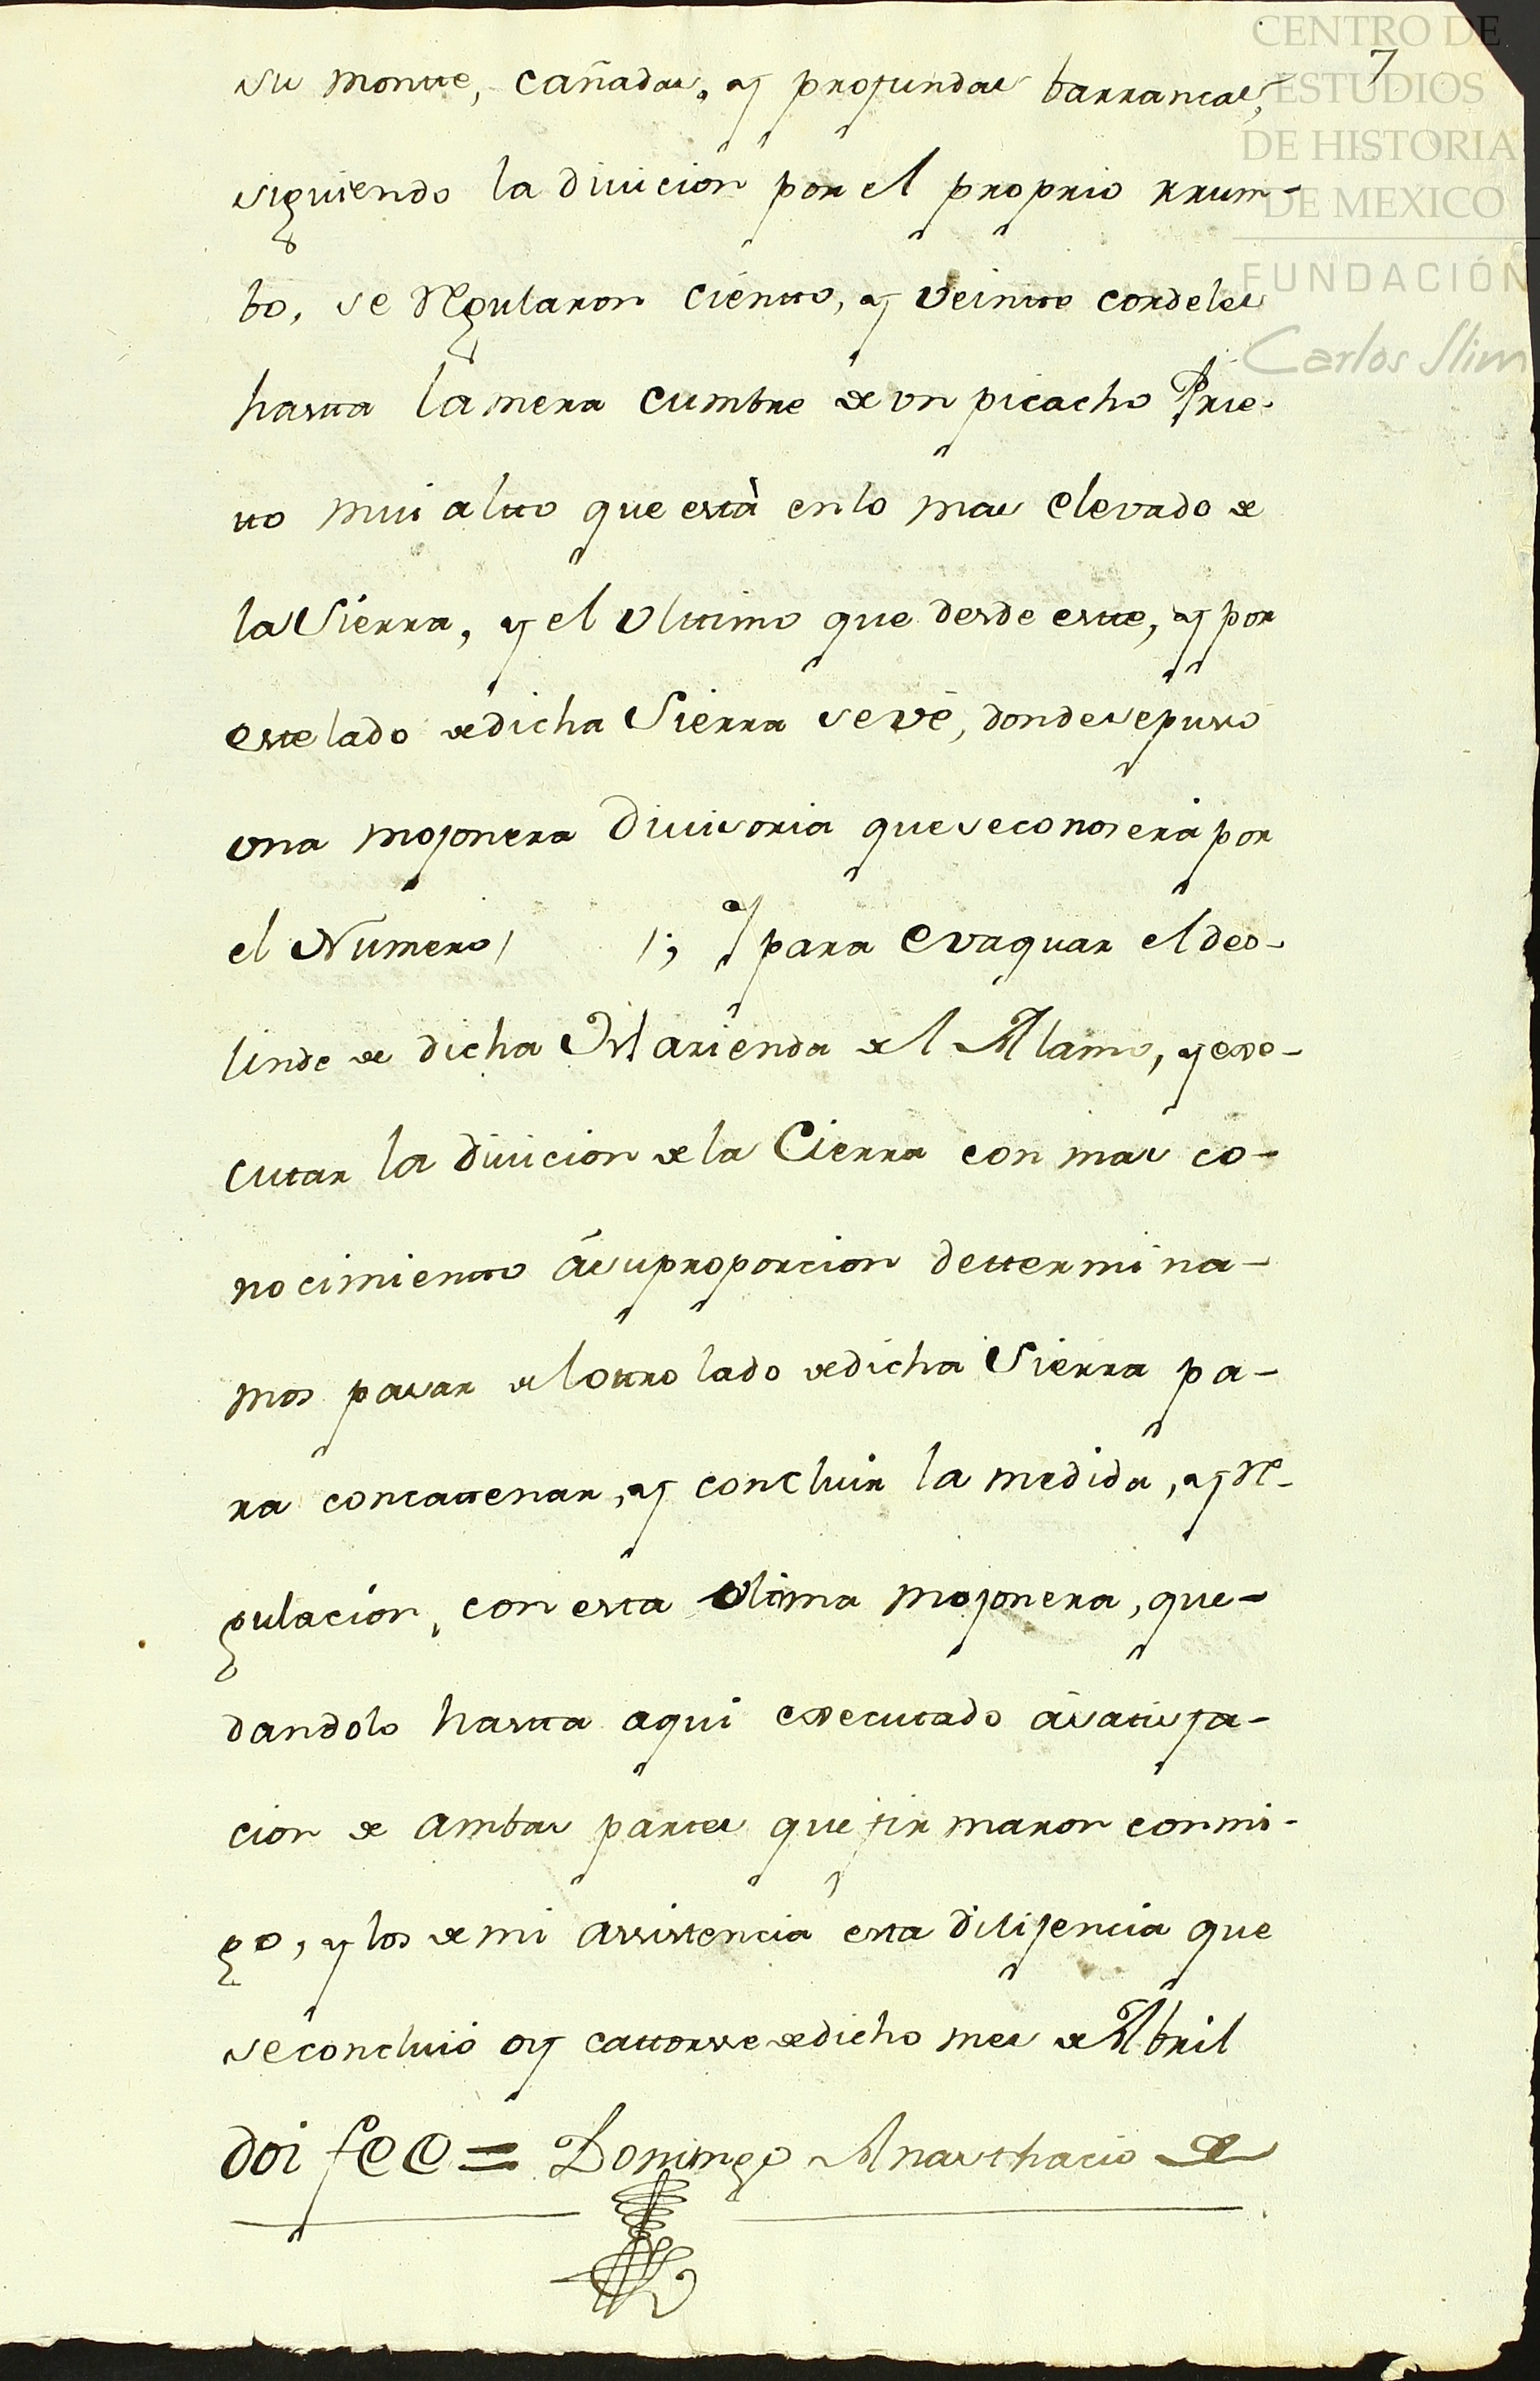 CENTRO DE
ESTUDIOS
DE HISTORIA
DE MEXICO
FUNDACIÓN
Carlos Slim
7
su montte, cañadas, y profundas barrancas,
siguiendo la divicion por el proprio rrum-
bo, se Regularon ciéntto, y veintte cordeles
hastta la mera cumbre de un picacho Prie-
tto mui altto que està en lo mas elevado de
la Siérra, y el Ulttimo que desde estte, y por
este lado de dicha Siérra se vé, donde se pusso
una mojonera Divisoria que se conoserá por
el Número / /; y para evaquar el des-
linde de dicha Hazienda de el Alamo, y exe-
cutar la divicion de la Cierra con mas co-
nocimientto á su proporcion dettermina-
mos pasar de el ottro lado de dicha Siérra pa-
ra concattenar, y concluir la medida, y Re-
gulación, con esta Ultima mojonera, que-
dandolo hastta aqui executado á satisfa-
cion de ambas partes que firmaron conmi-
go, y los de mi assistencia esta dilijencia que
se concluió oy cattorsse de dicho mes de Abril
doi feé = Domingo Anasthacio de